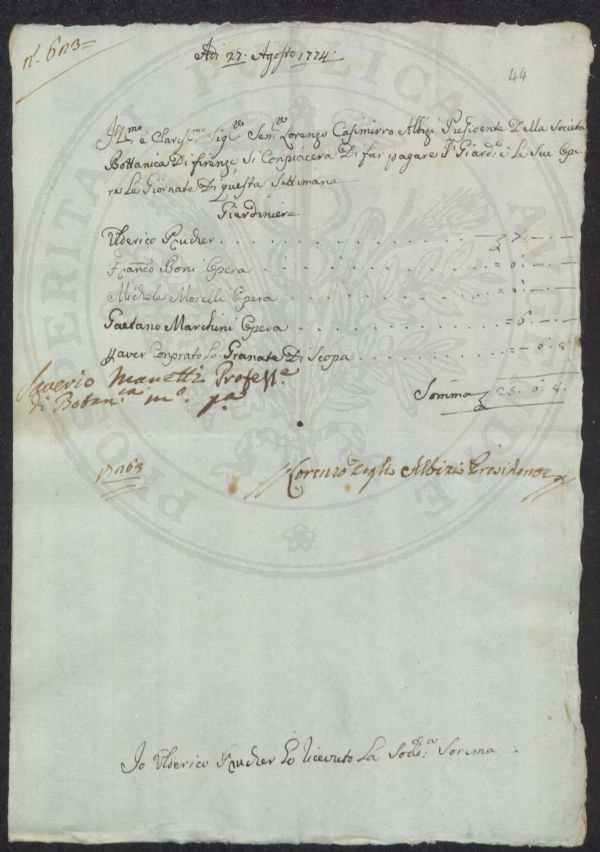 nº. 6113=
Adi 27. Agosto 1774.
44
Ill.mo e Clariss.mo Sig.re Sen.re Lorenzo Casimirro Albizi Presidente Della Societa
Bottanica Di firenze, Si Conpiacera Di far pagare Giard.o e Le Sue Ope
re Le Giornate Di questa Settimana
Giardiniere
Ulderico Prucher . . . . . . . 7. — . —
Franc.o Boni Opera . . . . . . . = 6. — . —
Michele Morelli Opera . . . . . . . = 6. — . —
Gaetano Marchini Opera . . . . . . . = 6. — . —
p aver Conprato Le Granate Di Scopa . . . . . . . = — . 6. 8.
Saverio Manetti Profess.e
di Botan.ca m.o p.a
Somma 25. 6. 8.
Lorenzo Degli Albizi Presidente
Io Ulderico Prucher ho ricevuto La Sod.a Somma
PROSPERITATI PUBLICAE